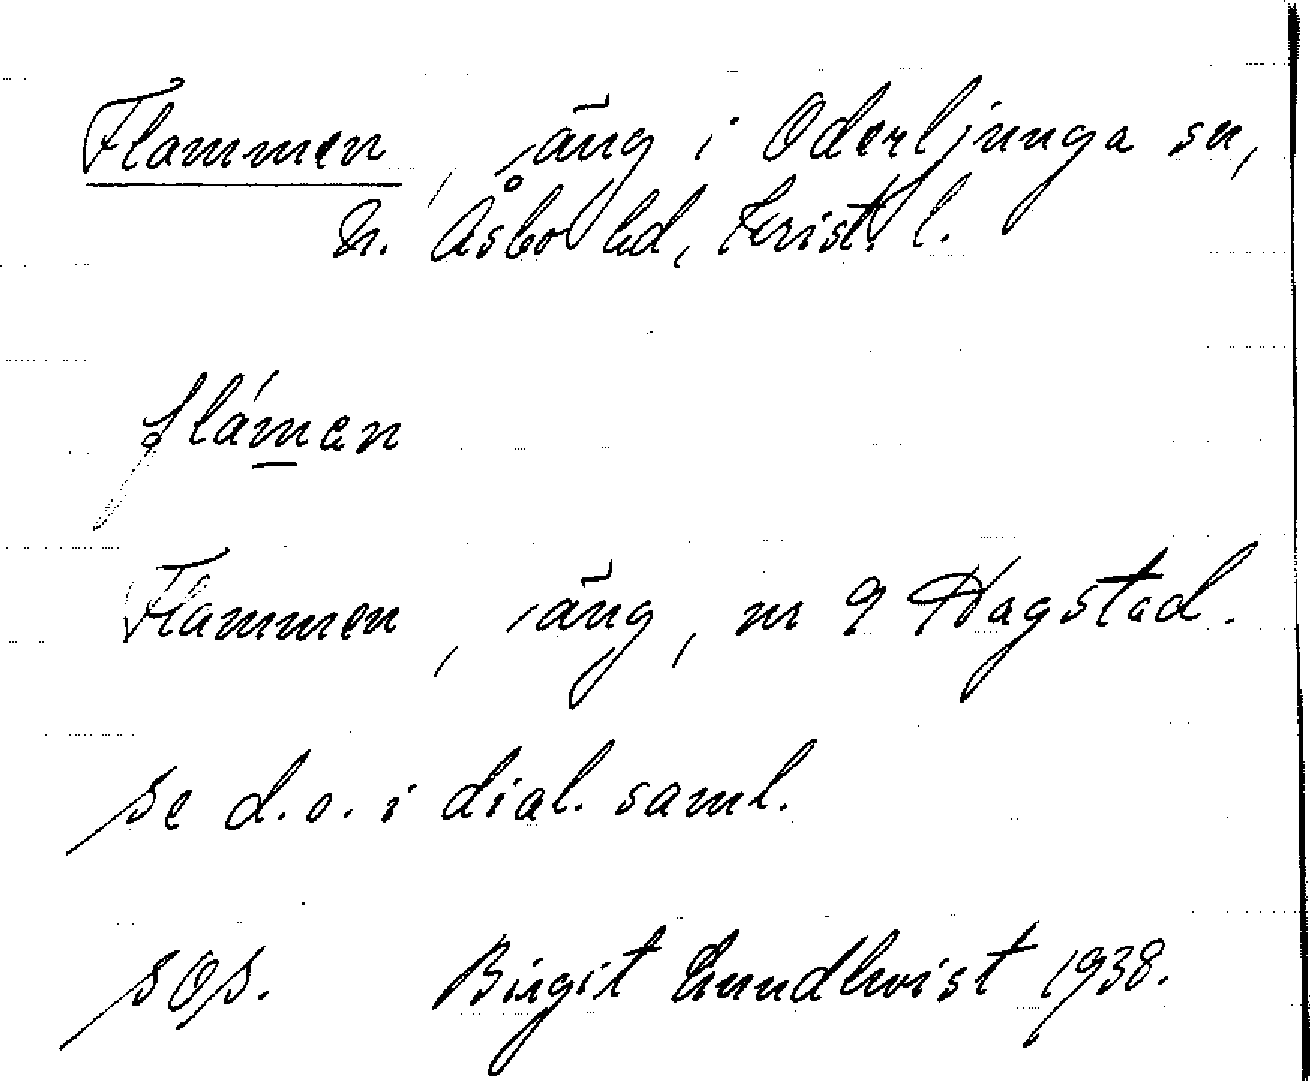 Flammen, äng i Oderljunga sn,
N. Åsbo hd, Krist. l.
flámen
Flammen, äng, nr 9 Hagstad.
se d.o. i dial. saml.
SOS. Birgit Lundkvist 1938.